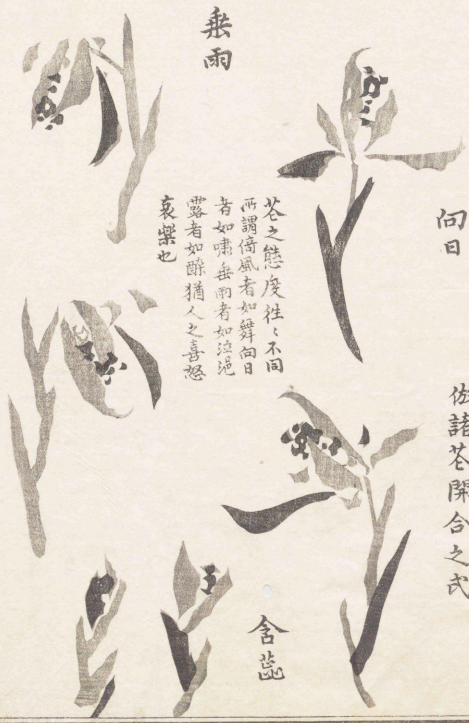 向日
佐諸花開合之式
垂雨
花之態度徃〻不同
所謂倚風者如舞向日
者如嘯垂雨者如泣浥
露者如醉猶人之喜怒
哀樂也
含蕊